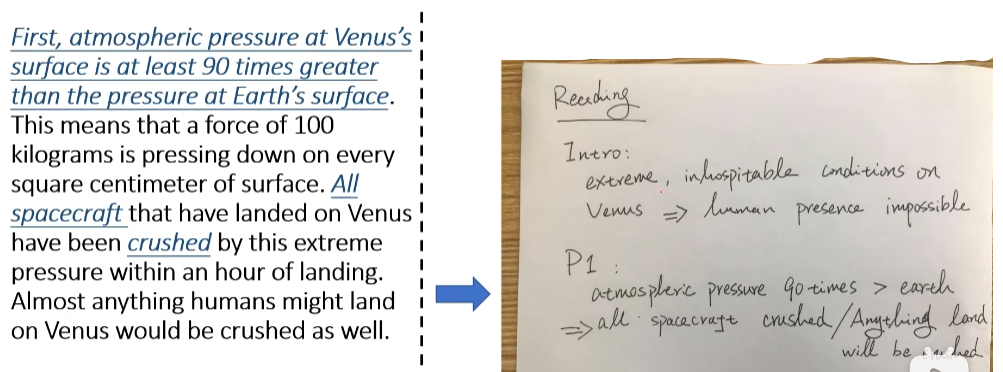 First, atmospheric pressure at Venus's
surface is at least 90 times greater
than the pressure at Earth's surface.
This means that a force of 100
kilograms is pressing down on every
square centimeter of surface. All
spacecraft that have landed on Venus
have been crushed by this extreme
pressure within an hour of landing.
Almost anything humans might land
on Venus would be crushed as well.
Reading
Intro:
extreme, inhospitable conditions on
Venus => human presence impossible
P1:
atmospheric pressure 90 times > earth
=> all spacecraft crushed/Anything land
will be crushed